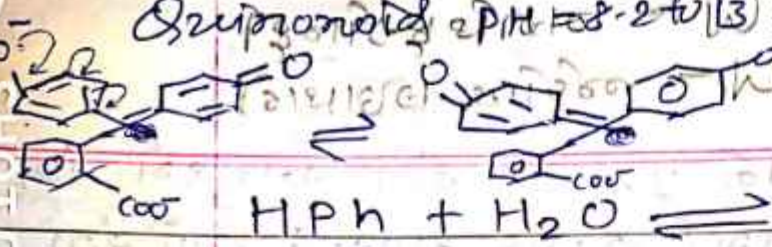 Quinonoid, PH = 8.2 to 13
O⁻ O O
COO⁻ COO⁻
H.Ph + H₂O ⇌